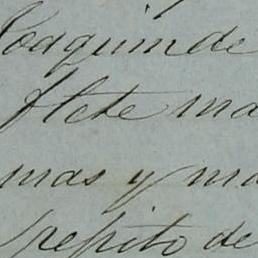 Joaquin de
flete ma
mas y ma
pepito de